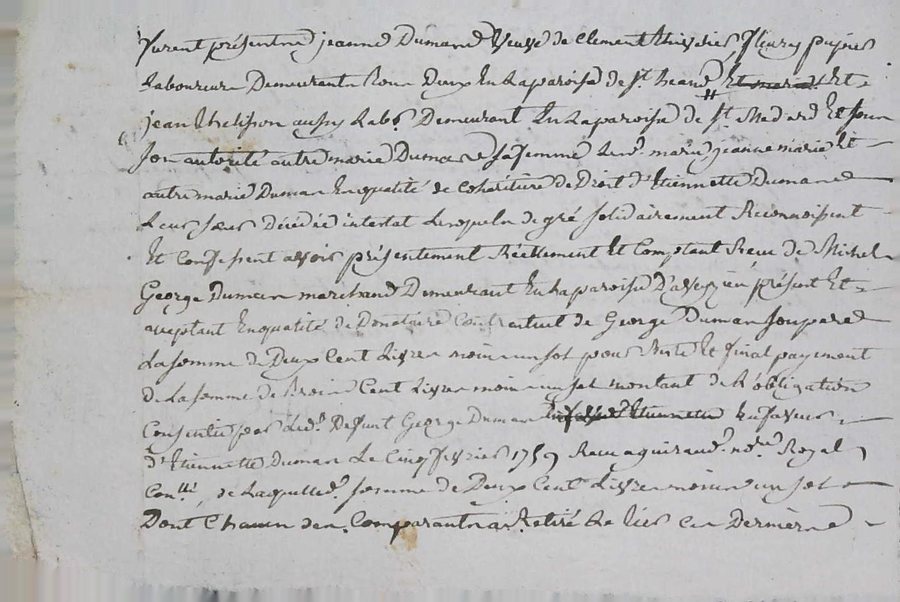 furent présentne jeanne Dumane Veuve de Clement fleury pupier
Laboureur Demeurant En La paroisse de St. jean Et
jean aussy Labr. Demeurant En La paroisse de St. Medard Et sous
son autorité autre marie Dumane sa femme marie jeanne marie Et
autre marie Duman En qualité de Cohéritiere de Droit d'Etiennette Dumane
Leur sœur Décédée intestat Lesquels de gré solidairement Reconnoissent
Et Confessent avoir présentement Réellement Et Comptant Receu de Michel
George Duman marchand Demeurant En La paroisse D'aveyzieu présent Et
aceptant En qualité de Donataire Contractuel de George Duman son pere
La somme de Deux Cent Livres moin un sol pour Reste Et final payement
de La somme de Trois Cent Livres moin un sol montant de L'obligation
Consentie par Led. Defunt George Duman En faveur
d'Etiennette Duman Le Cinq fevrier 1759 Receu guiraud. nore. Royal
de Laquelle somme de Deux Cent Livres moin un sol
Dont Chacun des Comparant a Retiré Le tier Ces Derniere